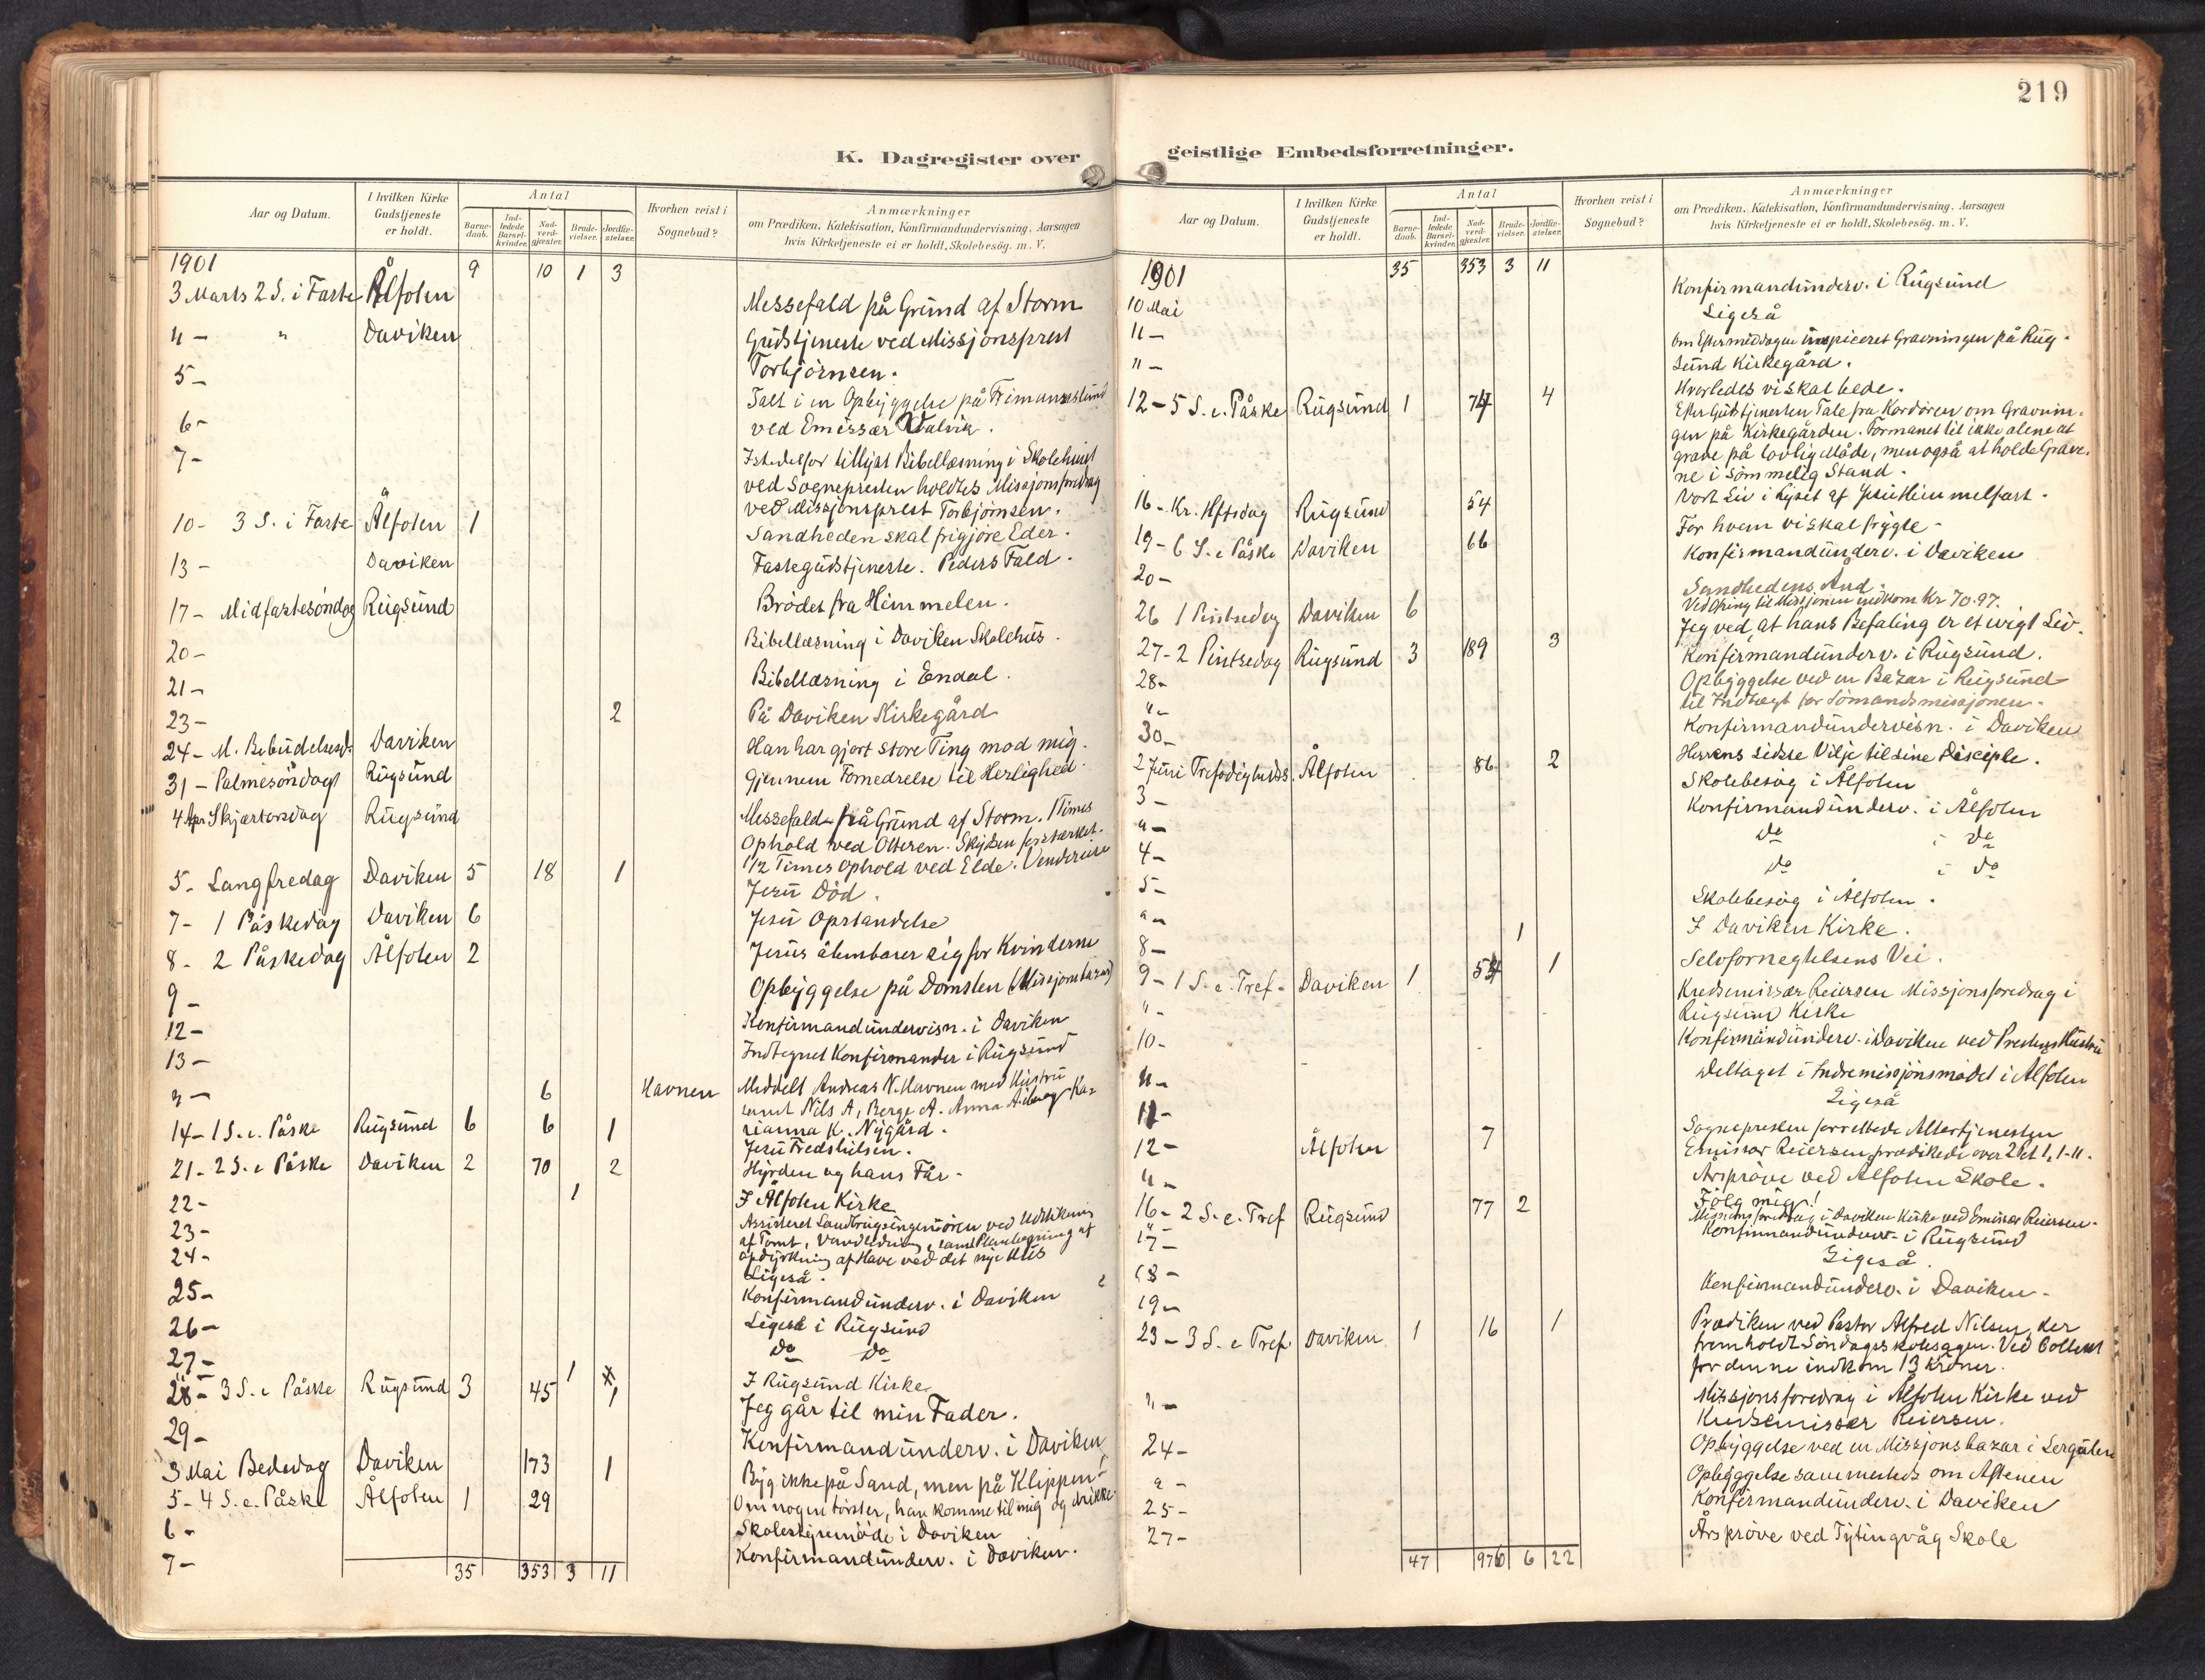 219
K. Dagregister over
Aar og Datum.
I hvilken Kirke
Gudstjeneste
er holdt.
Antal
Barne-
daab.
Ind-
ledede
Barsel-
kvinder.
Nad-
verd-
gjæster.
Brude-
vielser.
Jordfæ-
stelser.
Hvorhen reist i
Sognebud?
Anmærkninger
om Prædiken, Katekisation, Konfirmandundervisning, Aarsagen
hvis Kirketjeneste ei er holdt, Skolebesög. m. V.
1901 9 10 1 3
3 Marts 2 S. i Faste Ålfoten Messefald på Grund af Storm
" - " Daviken Gudstjeneste ved Missjonsprest
Torbjörnsen.
5 - Talt i en Opbyggelse på
6 - ved Emissær Walvik.
7 - Istedetfor tillyst Bibellæsning i Skolehuset
ved Sognepresten holdtes Missjonsforedrag
ved Missjonsprest Torbjörnsen.
10 - 3 S. i Faste Ålfoten 1 Sandheden skal frigjöre Eder.
13 - Daviken Fastegudstjeneste. Peders Fald.
17 - Midfastesöndag Rugsund Brödet fra Himmelen.
20 - Bibellæsning i Daviken Skolehus.
21 - Bibellæsning i Endal.
23 - 2 På Daviken Kirkegård
24 - M. Bebudelsesd. Daviken Han har gjort store Ting mod mig.
31 - Palmesöndag Rugsund Gjennem Fornedrelse til Herlighed.
4 Apr Skjærtorsdag Rugsund Messefald på Grund af Storm. 1 Times
Ophold ved Otteren. Skydsen forstærket.
1/2 Times Ophold ved Elde. Vendereise
5 - Langfredag Daviken 5 18 1 Jesu Död.
7 - 1 Påskedag Daviken 6 Jesu Opstandelse
8 - 2 Påskedag Ålfoten 2 Jesus åbenbarer sig for Kvinderne
9 - Opbyggelse på Domsten (Missjonsbazar)
12 - Konfirmandundervisn. i Daviken
13 - Indtegnet Konfirmander i Rugsund
" - 6 Havnen Meddelt Andreas N. Havnen med Hustru
samt Nils A, Berge A. Anna A Ka-
rianna K. Nygård.
14 - 1 S. e. Påske Rugsund 6 6 1 Jesu Fredshilsen.
21 - 2 S. e Påske Daviken 2 70 2 Hyrden og hans Får.
22 - 1 I Ålfoten Kirke
23 - Assisteret Landbrugsingeniören ved Udstikning
24 - af Tomt, Vandledning, samt Planlægning af
opdyrkning af Have ved det nye Hus
25 - Ligeså.
26 - Konfirmandunderv. i Daviken
27 - Ligeså i Rugsund
Do Do
" - 1 I Rugsund Kirke
28 - 3 S. e Påske Rugsund 3 45 1 Jeg går til min Fader.
29 - Konfirmandunderv. i Daviken
3 Mai Bededag Daviken 173 1 Byg ikke på Sand, men på Klippen!
5 - 4 S. e. Påske Ålfoten 1 29 Om nogen törster, han komme til mig og drikke.
6 - Skolestyremöde i Daviken
7 - Konfirmandunderv. i Daviken.
35 353 3 11
geistlige Embedsforretninger.
Aar og Datum.
I hvilken Kirke
Gudstjeneste
er holdt.
Antal
Barne-
daab.
Ind-
ledede
Barsel-
kvinder.
Nad-
verd-
gjæster.
Brude-
vielser.
Jordfæ-
stelser.
Hvorhen reist i
Sognebud?
Anmærkninger
om Prædiken, Katekisation, Konfirmandundervisning, Aarsagen
hvis Kirketjeneste ei er holdt, Skolebesög. m. V.
1901 35 353 3 11
10 Mai Konfirmandunderv. i Rugsund
11 - Ligeså
" - Om Eftermiddagen inspiceret Gravningen på Rug-
sund Kirkegård.
12 - 5 S. e. Påske Rugsund 1 74 4 Hvorledes vi skal bede.
Efter Gudstjenesten Tale fra Kordören om Gravnin-
gen på Kirkegården. Formanet til ikke alene at
grave på lovlig Måde, men også at holde Grave-
ne i sömmelig Stand.
16 - Kr. Hftsdag Rugsund 54 Vort Liv i Lyset af Jesu Himmelfart.
19 - 6 S. e Påske Daviken 66 For hvem vi skal frygte -
20 - Konfirmandunderv. i Daviken
26 1 Pintsedag Daviken 6 Sandhedens Ånd.
Ved Ofring til Missjonen indkom Kr 70.97.
27 - 2 Pintsedag Rugsund 3 189 3 Jeg ved, at hans Befaling er et evigt Liv.
28 - Konfirmandunderv. i Rugsund.
" - Opbyggelse ved en Bazar i Rugsund
til Indtægt for Sömandsmissjonen.
30 - Konfirmandundervisn. i Daviken
2 Juni Trefoldigheds. Ålfoten 86 2 Herrens sidste Vilje til sine Disciple.
3 - Skolebesög i Ålfoten
" - Konfirmandunderv. i Ålfoten
4 - Do i Do
5 - Do i Do
" - Skolebesög i Ålfoten.
8 - 1 I Daviken Kirke.
9 - 1 S. e. Tref - Daviken 1 54 1 Selvfornegtelsens Vei.
" - Kredsemissær Reiersen Missjonsforedrag i
Rugsund Kirke
10 - Konfirmandunderv. i Daviken ved Prestens Hustru
11 - Deltaget i Indremissjonsmödet i Ålfoten
12 - Ligeså
12 - Ålfoten 7 Sognepresten forrettede Altertjenesten
Emissær Reiersen prædikede over 2 Pet 1, 1-11.
" - Årspröve ved Ålfoten Skole.
16 - 2 S. e. Tref Rugsund 77 2 Fölg mig!
" - Missjonsforedrag i Daviken Kirke ved Emissær Reiersen.
17 - Konfirmandunderv. i Rugsund
18 - Ligeså.
19 - Konfirmandunderv. i Daviken -
23 - 3 S. e Tref Daviken 1 16 1 Prædiken ved Pastor Alfred Nilsen, der
fremholdt Söndagsskolesagen. Ved Collekt
for denne indkom 13 Kroner.
" - Missjonsforedrag i Ålfoten Kirke ved
Kredsemissær Reiersen.
24 - Opbyggelse ved en Missjonsbazar i
" - Opbyggelse sammesteds om Aftenen
25 - Konfirmandunderv. i Daviken
27 - Årspröve ved Tytingvåg Skole
47 976 6 22